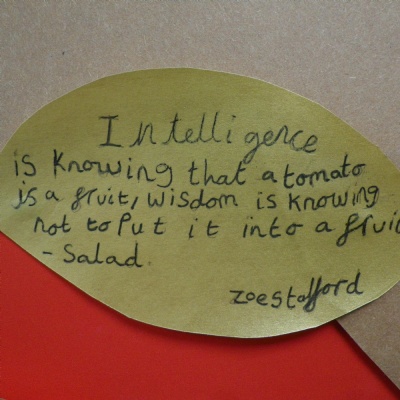 Intelligence
is Knowing that a tomato
is a fruit, wisdom is knowing
not to Put it into a fruit
- Salad.
zoe stafford